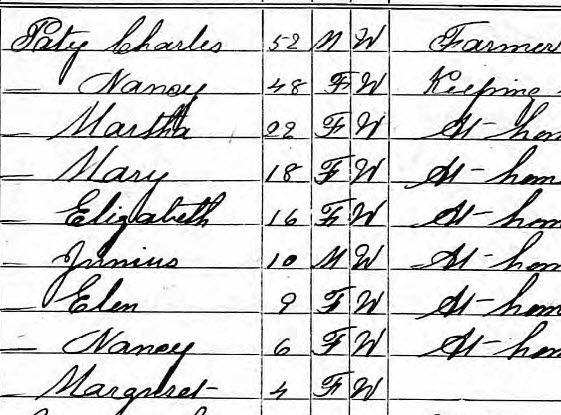 Paty Charles 52 M W Farmer
— Nancy 48 F W Keeping
— Martha 22 F W At-hom
— Mary 18 F W At-hom
— Elizabeth 16 F W At-hom
— Junius 10 M W At-hom
— Elen 9 F W At-hom
— Nancy 6 F W At-hom
— Margaret 4 F W